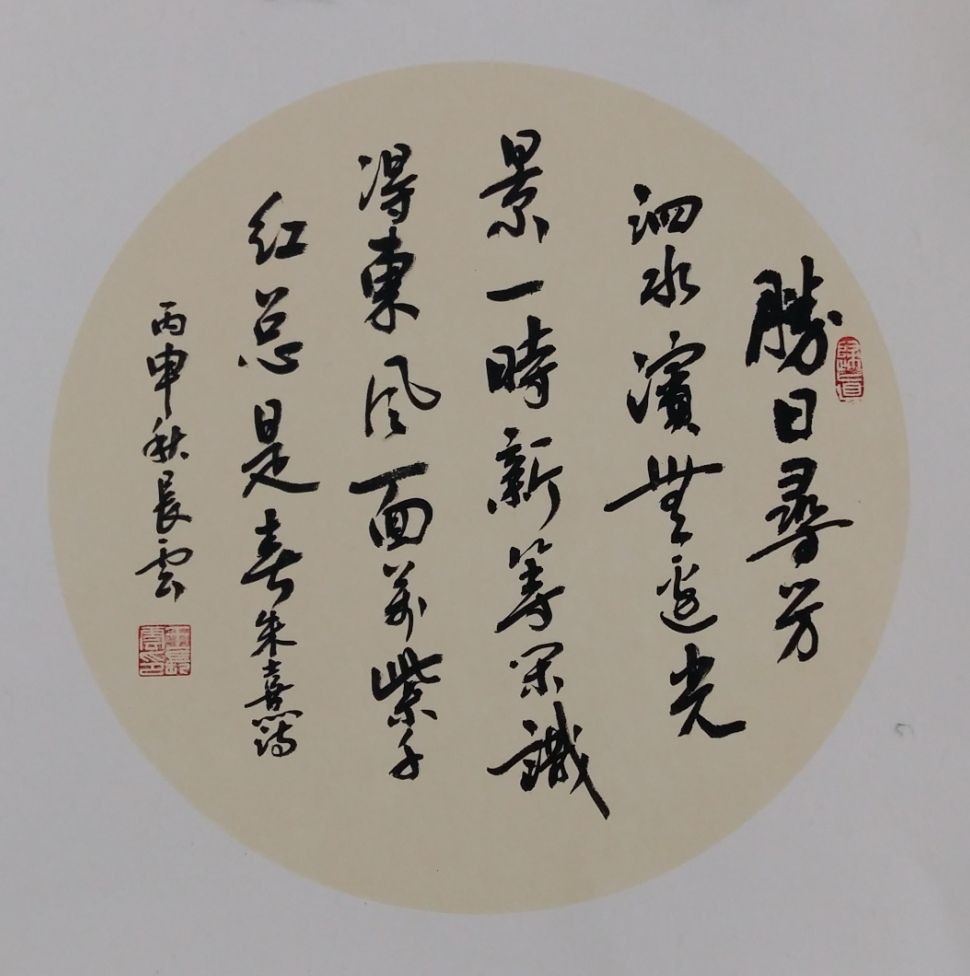 勝日尋芳
泗水濱無邊光
景一時新等閑識
得東風面萬紫千
紅总是春朱熹詩
丙申秋長雲